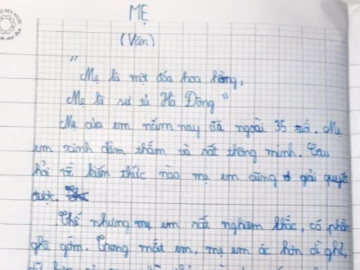 MẸ
(Văn)
"Mẹ là một đóa hoa hồng,
Mẹ là sư tử Hà Đông"
Mẹ của em năm nay đã ngoài 35 tuổi. Mẹ
em xinh đẹp thắm và rất thông minh. Câu
hỏi về kiến thức nào mẹ em cũng giải quyết
được.
Thế nhưng mẹ em rất nghiêm khắc, có phần
ghê gớm. Trong mắt em, mẹ em ác hơn dì ghẻ,